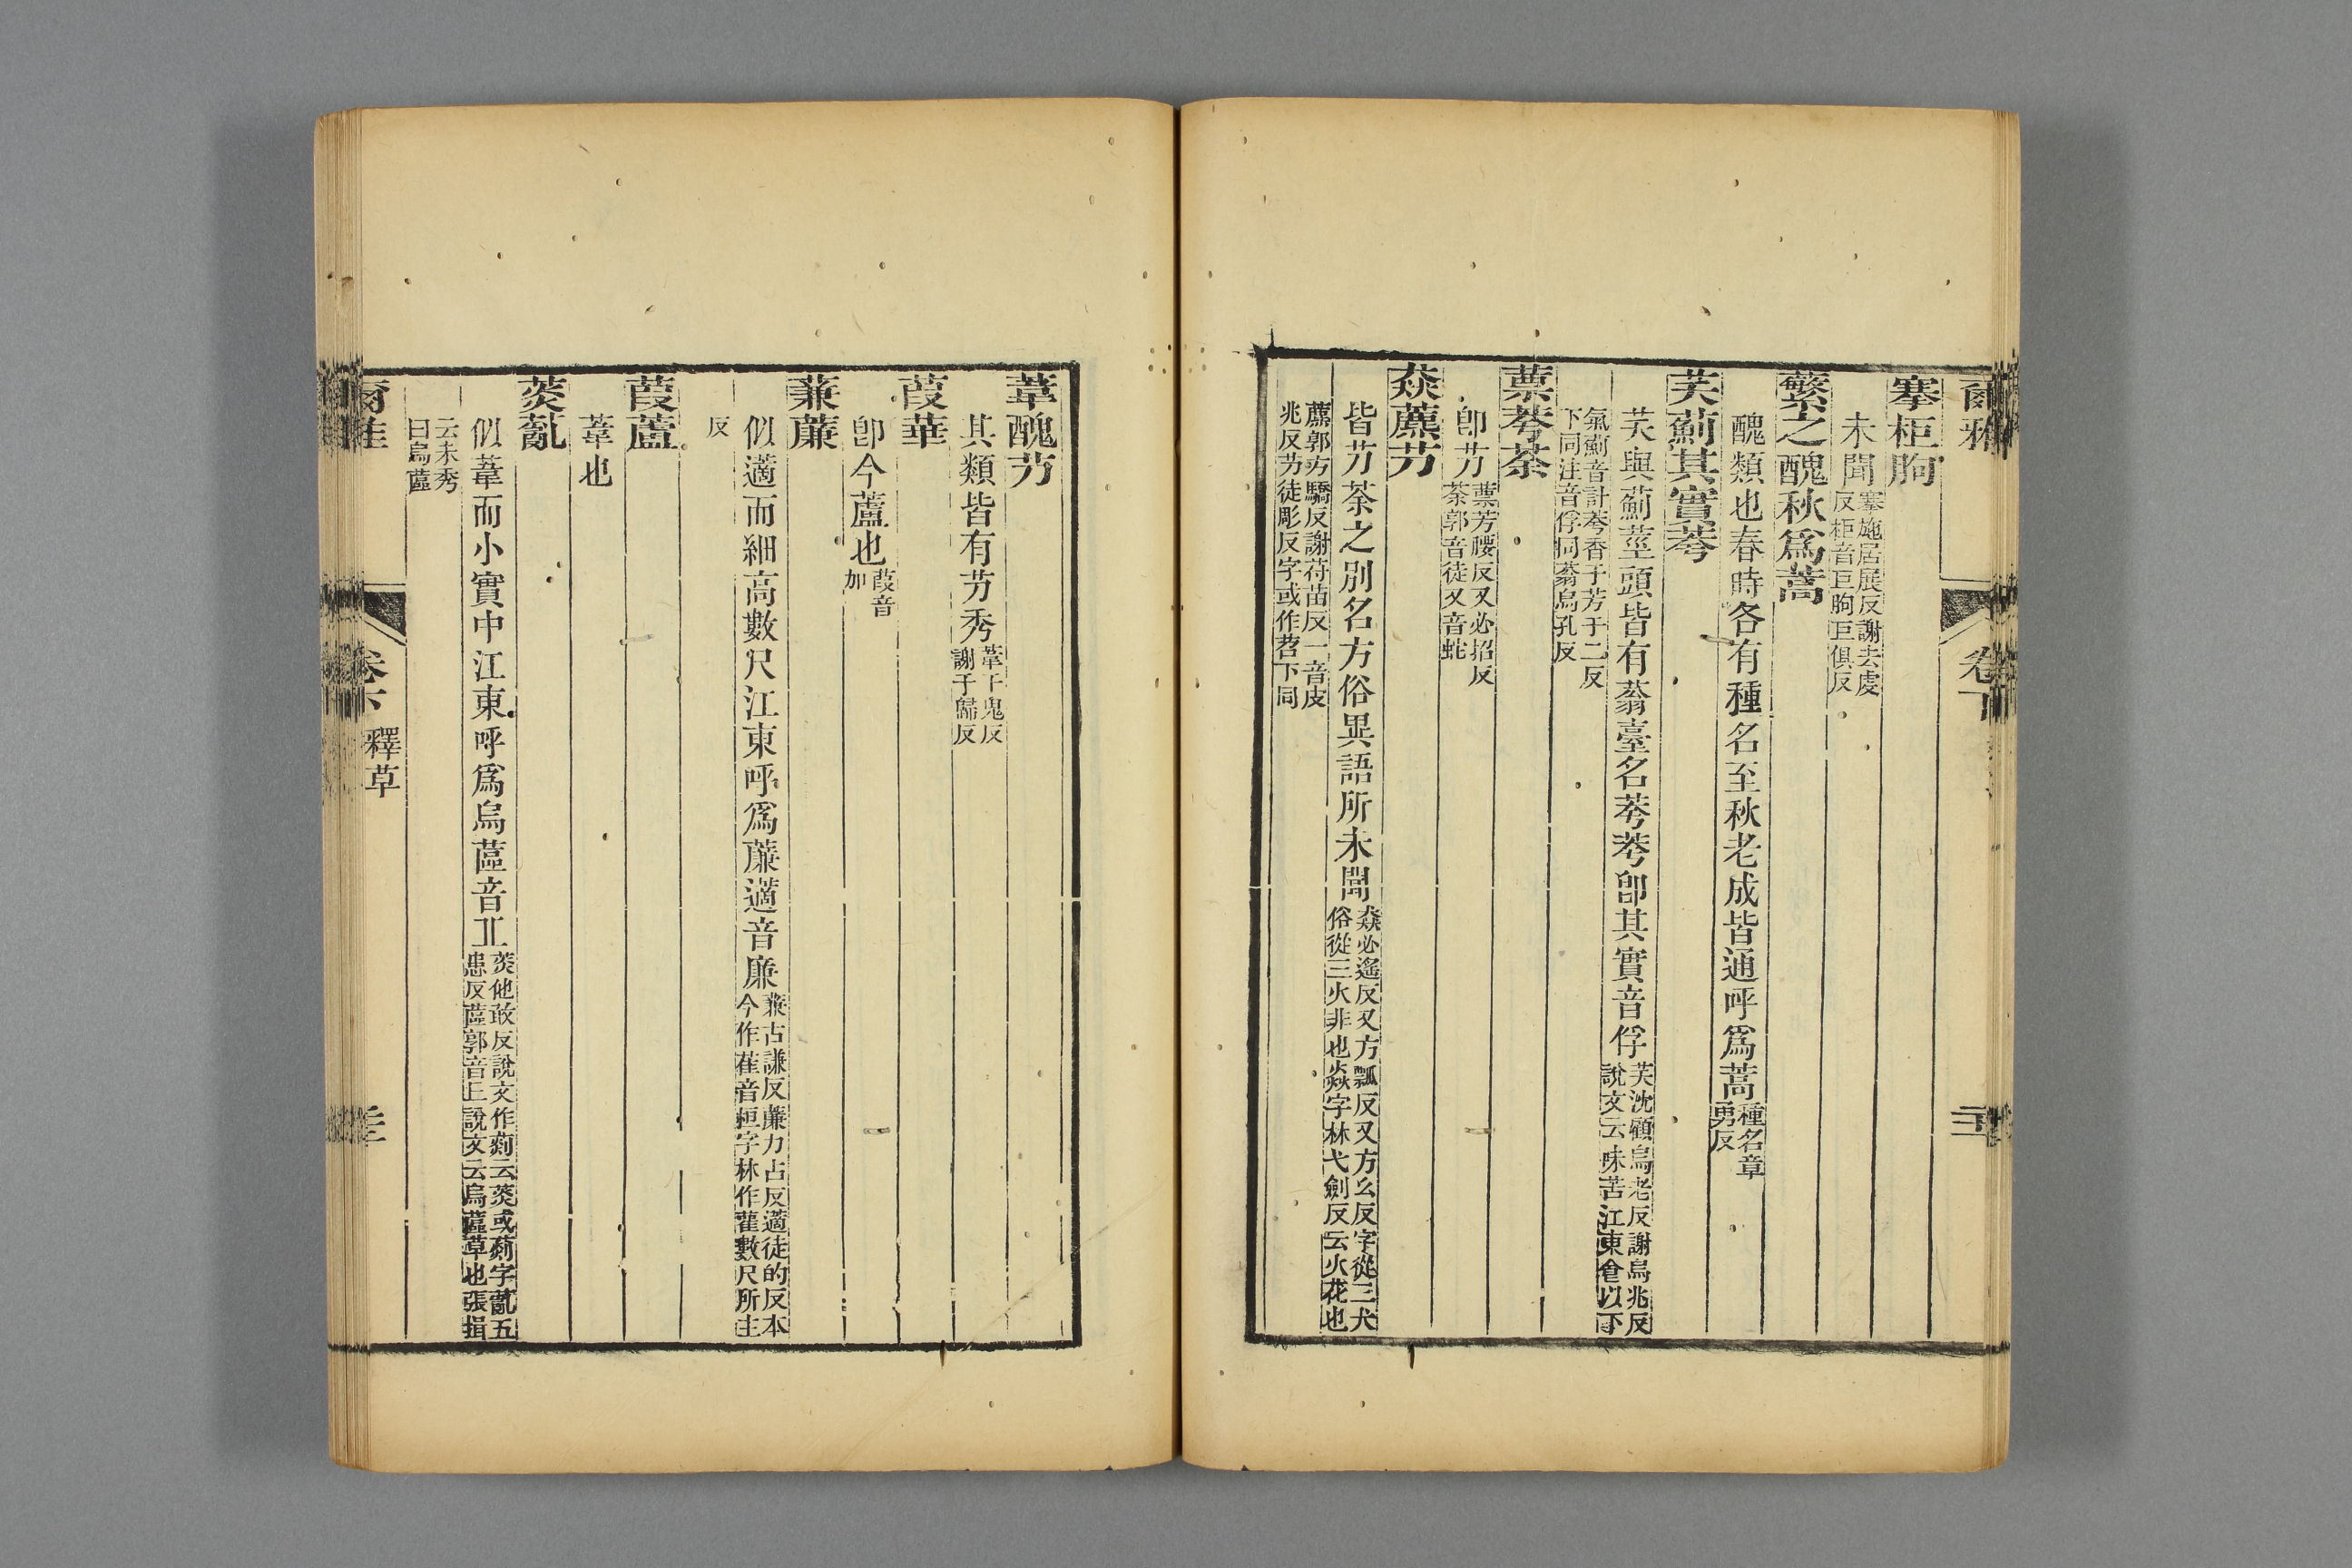 爾雅
卷下
搴柜朐
未聞搴施居展反謝去虔反柜音巨朐巨俱反
蘩之醜秋爲蒿
醜類也春時各有種名至秋老成皆通呼爲蒿種名章勇反
芺薊其實荂
芺與薊莖頭皆有蓊臺名荂荂卽其實音俘芺沈顧烏老反謝烏兆反說文云味苦江東食以下
氣薊音計荂香于芳于二反下同注音俘同蓊烏孔反
蔈荂荼
卽芀蔈芳腰反又必招反荼郭音徒又音蛇
猋藨芀
皆芀荼之別名方俗異語所未聞猋必遙反又方瓢反又方么反字從三犬俗從三火非也焱字林弋劍反云火花也
藨郭方驕反謝苻苗反一音皮兆反芀徒彫反字或作苕下同
葦醜芀
其類皆有芀秀葦于鬼反謝于歸反
葭華
卽今蘆也葭音加
蒹薕
似薍而細高數尺江東呼爲薕藡音廉蒹古謙反薕力占反藡徒的反本今作萑音桓字林作雚數尺所主
反
葭蘆
葦也
菼薍
似葦而小實中江東呼爲烏蓲音丘菼他敢反說文作䓘云菼或䓘字薍五患反蓲郭音丘說文云烏蓲草也張揖
云未秀曰烏蓲
爾雅
卷下
釋草